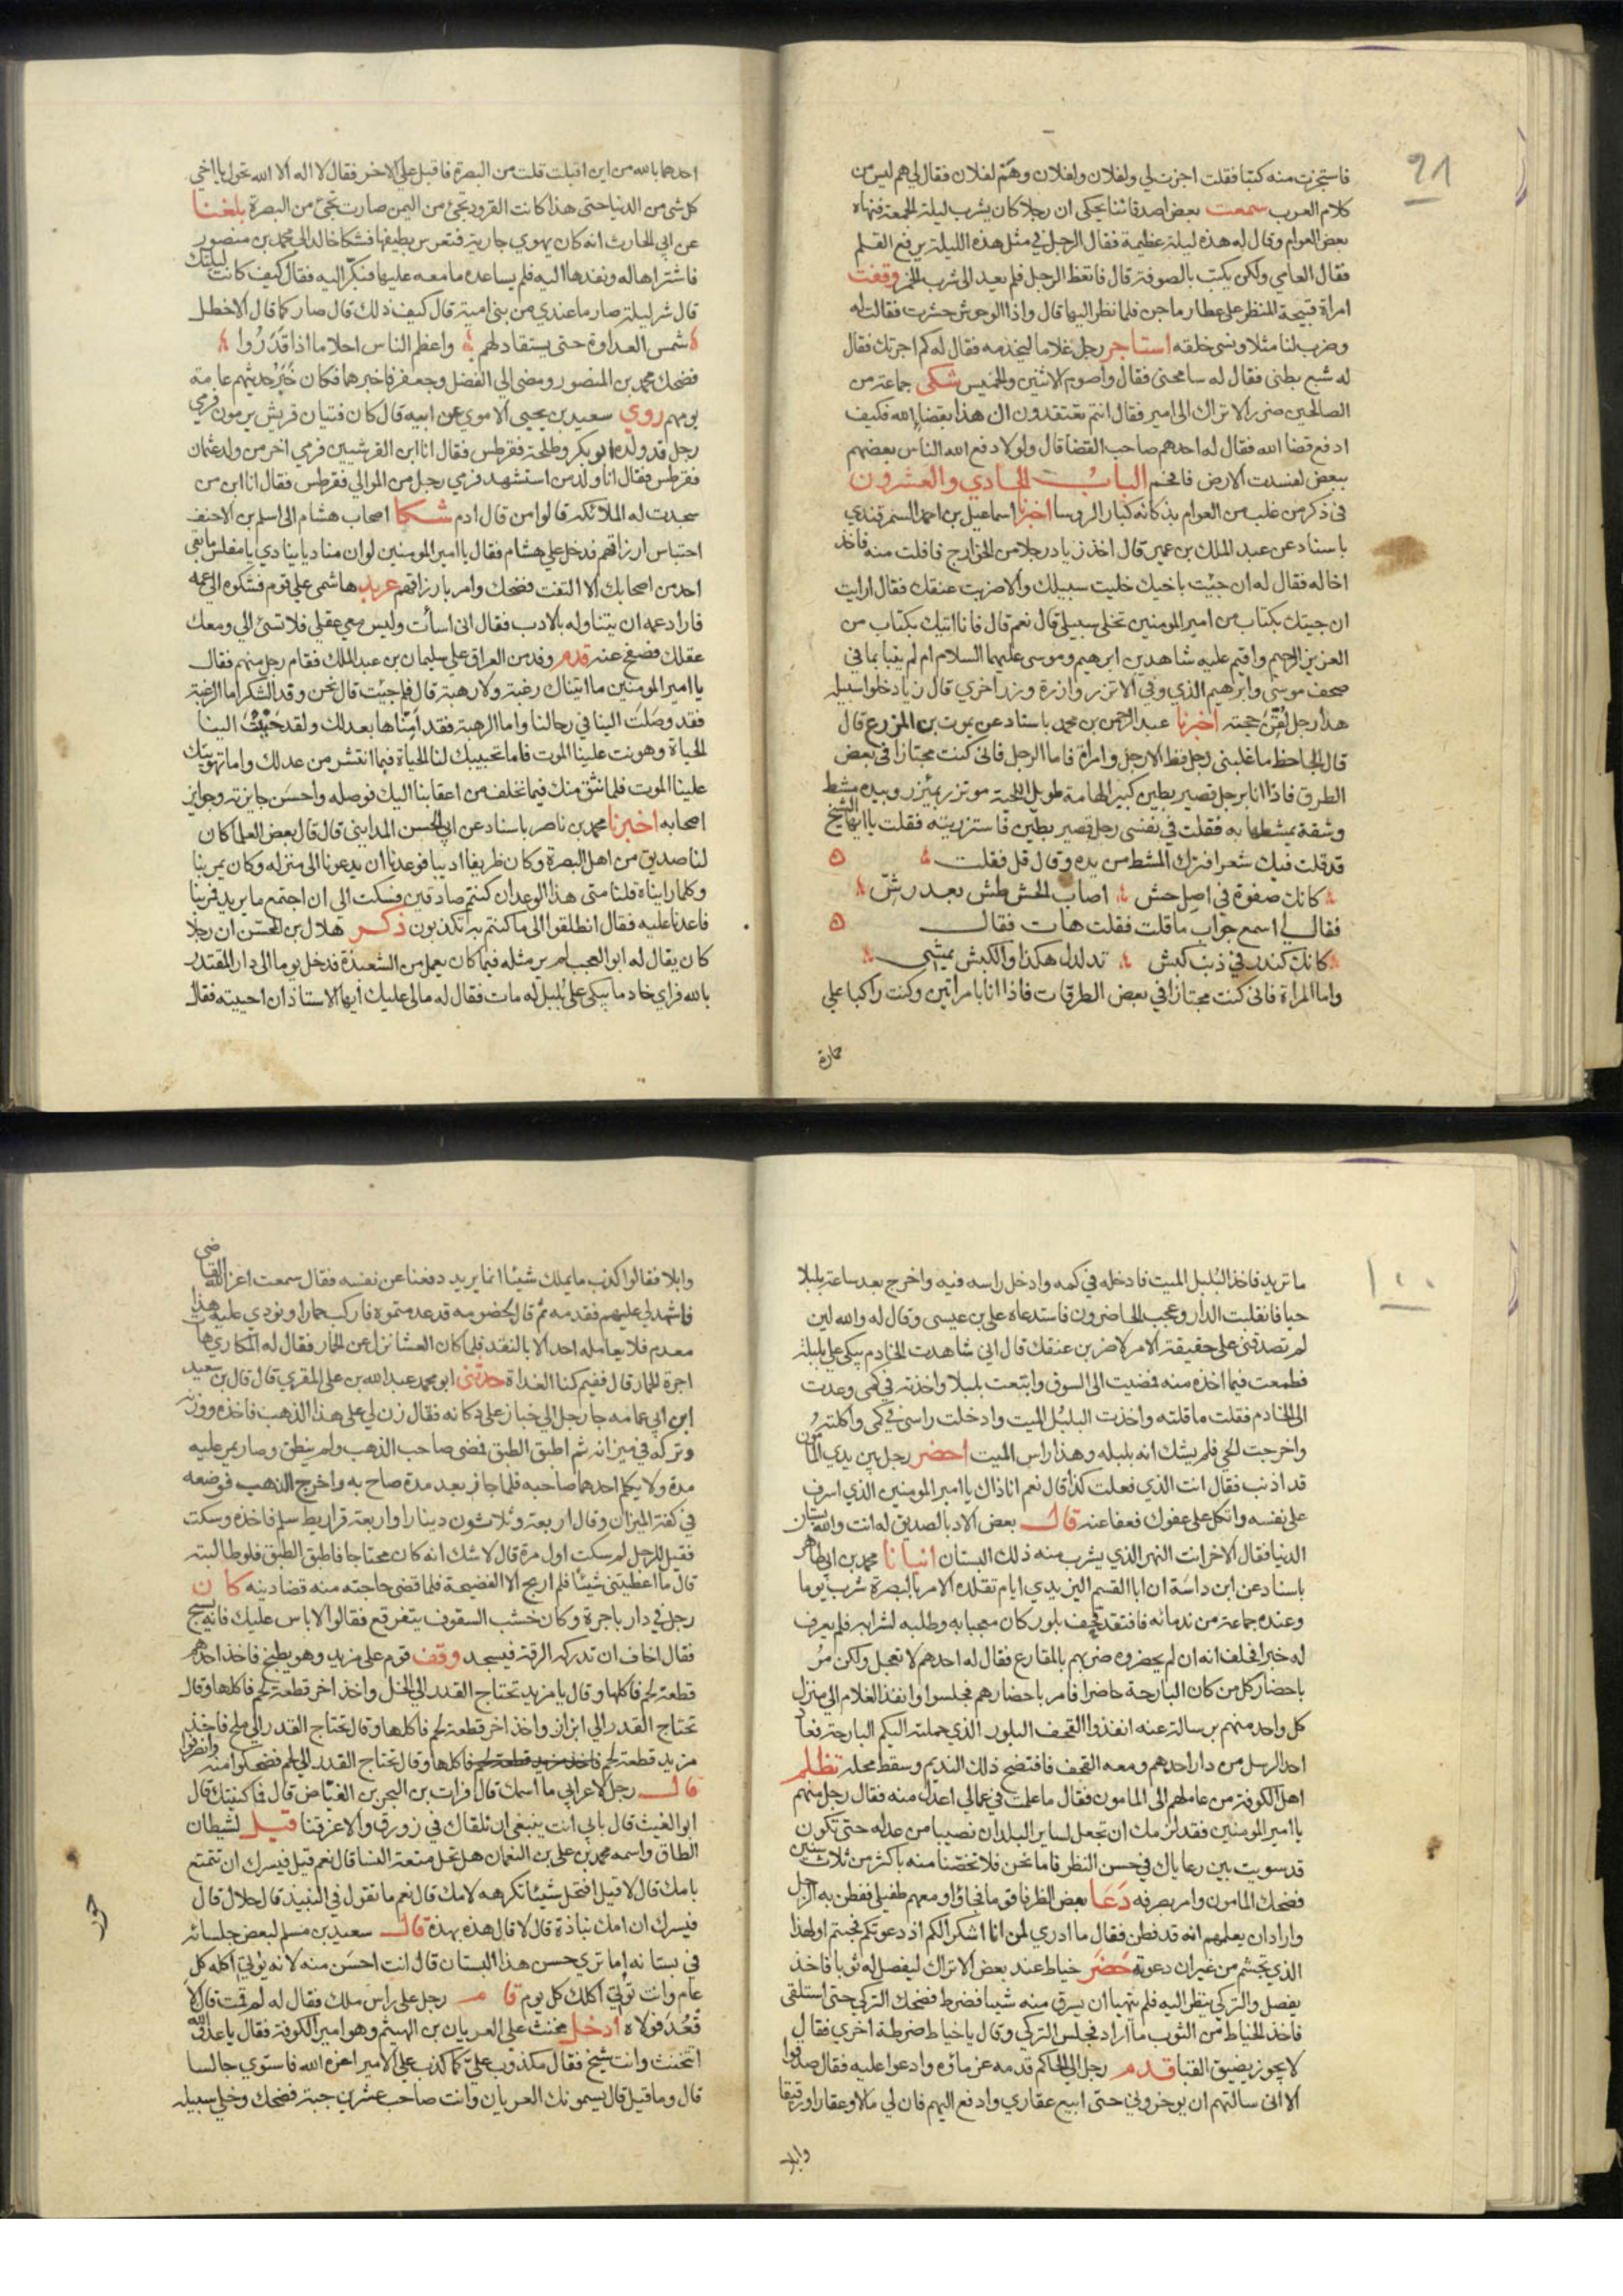 ٩٨
فاستجزت منه كتبا فقلت اجزت لي ولفلان ولفلان وهَتم لفلان فقال لي هم ليس من
كلام العرب سمعت بعض اصدقائنا يحكى ان رجلا كان يشرب ليلة الجمعة فنهاه
بعض العوام وقال له هذه ليلة عظيمة فقال الرجل في مثل هذه الليلة يرفع القلم
فقال العامي ولكن يكتب بالصوفة قال فاتعظ الرجل فلم يعد الى شرب الخمر وقفت
امراة قبيحة المنظر على عطار ماجن فلما نظر اليها قال واذا الوحوش حشرت فقالت له
وضرب لنا مثلا ونسي خلقه استاجر رجل غلاما ليخدمه فقال له كم اجرتك فقال
له شبع بطني فقال له سامحني فقال واصوم الاثنين والخميس شكى جماعة من
الصالحين ضرر الاتراك الى امير فقال انتم تعتقدون ان هذا بقضاء الله فكيف
ادفع قضا الله فقال له احدهم صاحب القضا قال ولولا دفع الله الناس بعضهم
ببعض لفسدت الارض فافحم الباب الحادي والعشرون
في ذكر من غلب من العوام بذكائه كبار الروسا اخبرنا اسماعيل بن احمد السمرقندي
باسناد عن عبد الملك بن عمير قال اخذ زياد رجلا من الخوارج فافلت منه فاخذ
اخاله فقال له ان جيت باخيك خليت سبيلك والا ضربت عنقك فقال ارايت
ان جيتك بكتاب من امير المومنين تخلى سبيلي قال نعم قال فانا اتيك بكتاب من
العزيز الرحيم واقيم عليه شاهدين ابرهيم وموسى عليهما السلام ام لم ينبا بما في
صحف موسى وابرهيم الذي وفي الا تزر وازرة وزر اخري قال زياد خلوا سبيله
هذا رجل لُقّن حجته اخبرنا عبد الرحمن بن محمد باسناد عن يموت بن المزرع قال
قال الجاحظ ما غلبني رجل قط الا رجل وامراة فاما الرجل فاني كنت مجتازا في بعض
الطرق فاذا انا برجل قصير بطين كبير الهامة طويل اللحية موتزر بميزر وبيده مشط
وشقة يمشطها به فقلت في نفسى رجل قصير بطين فاستزريته فقلت يا ايها الشيخ
قد قلت فيك شعرا فترك المشط من يده وقال قل فقلت
كانك صعوة في اصل حش اصاب الحش طش بعد رشّ
فقال لي اسمع جواب ما قلت فقلت هات فقال
كانك كندر في ذنب كبش تدلدل هكذا والكبش يمشى
واما المراة فاني كنت مجتازا في بعض الطرقات فاذا انا بامراتين وكنت راكبا على
حمارة
احدهما بالله من اين اقبلت قلت من البصرة فاقبل على الاخر فقال لا اله الا الله تحول يا اخي
كل شي من الدنيا حتى هذا كانت القرود تجئ من اليمن صارت تجئ من البصرة بلغنا
عن ابي الحارث انه كان يهوي جارية فتعرس بطيفها فشكا خاله الى محمد بن منصور
فاشتراها له ونفدها اليه فلم يساعده ما معه عليها فبكّر اليه فقال كيف كانت ليلتك
قال شر ليلة صار ما عندي من بني امية قال كيف ذلك قال صار كما قال الاخطل
شمس العداوة حتى يستقاد لهم واعظم الناس احلاما اذا قدَرُوا
فضحك محمد بن المنصور ومضى الى الفضل وجعفر فاخبرهما فكان خَبَر حديثهم عامة
يومهم روي سعيد بن يحيى الاموي عن ابيه قال كان فتيان قريش يرمون فرمي
رجل قد ولده ابو بكر وطلحة فقرطس فقال انا ابن القرشيين فرمي اخر من ولد عثمان
فقرطس فقال انا ولد من استشهد فرمي رجل من الموالي فقرطس فقال انا ابن من
سجدت له الملائكة قالوا من قال ادم شكا اصحاب هشام الى اسلم بن الاحنف
احتباس ارزاقهم فدخل على هشام فقال يا امير المومنين لو ان مناديا ينادي يا مفلس ما بقي
احد من اصحابك الا التفت فضحك وامر بارزاقهم عربد هاشمى على قوم فشكوه الى عمه
فاراد عمه ان يتناوله بالادب فقال انى اسأت وليس معي عقلي فلا تسئ الي ومعك
عقلك فصفح عنه قدم وفد من العراق على سليمان بن عبد الملك فقام رجل منهم فقال
يا امير المومنين ما اتيناك رغبة ولا رهبة قال فلم جيت قال نحن وفد الشكر اما الرغبة
فقد وصَلَت الينا في رحالنا واما الرهبة فقد اَمِنّاها بعدلك ولقد حَبّبْتَ الينا
الحياة وهونت علينا الموت فاما تحبيبك لنا الحياة فبما انتشر من عدلك واما تهوينك
علينا الموت فلما نثق منك فيما نخلف من اعقابنا اليك فوصله واحسَن جايزته وجوايز
اصحابه اخبرنا محمد بن ناصر باسناد عن ابي الحسن المدايني قال قال بعض العلما كان
لنا صديق من اهل البصرة وكان ظريفا اديبا فوعدنا ان يدعونا الى منزله وكان يمر بنا
وكلما رايناه قلنا متى هذا الوعد ان كنتم صادقين فسكت الى ان اجتمع ما يريد فمر بنا
فاعدنا عليه فقال انطلقوا الى ما كنتم به تكذبون ذكر هلال بن المحسّن ان رجلا
كان يقال له ابو العجب لم ير مثله فيما كان يعمل من الشعبذة فدخل يوما الى دار المقتدر
بالله فراي خادما يبكي على بُلبل له مات فقال له مالي عليك أيها الاستاذ ان احييته فقال
١٠٠
ما تريد فاخذ البُلبل الميت فادخله في كمه وادخل راسه فيه واخرج بعد ساعة بلبلا
حيا فانقلبت الدار وعجب الحاضرون فاستدعاه علي بن عيسى وقال له والله لين
لم تصدقني على حقيقة الامر لاضربن عنقك قال اني شاهدت الخادم يبكي على بلبله
فطمعت فيما اخذه منه فمضيت الى السوق وابتعت بلبلا واخذته في كمى وعدت
الى الخادم فقلت ما قلته واخذت البلبُل الميت وادخلت راسي في كمى واكلته
واخرجت الحي فلم يشك انه بلبله وهذا راس الميت احضر رجل بين يدي المامون
قد اذنب فقال انت الذي فعلت كذا قال نعم انا ذاك يا امير المومنين الذي اسرف
على نفسه واتكل على عفوك فعفا عنه قال بعض الادبا لصديق له انت والله بستان
الدنيا فقال الاخر انت النهر الذي يشرب منه ذلك البستان انبانا محمد بن ابي طاهر
باسناد عن ابن داسَة ان ابا القسم اليزيدي ايام تقلده الامر بالبصرة شرب يوما
وعنده جماعة من ندمائه فافتقد قحف بلور كان معجبا به وطلبه لشرابه فلم يعرف
له خبرا فحلف انه ان لم يحضروه ضربهم بالمقارع فقال له احدهم لا تعجل ولكن مُر
باحضار كل من كان البارحة حاضرا فامر باحضارهم فجلسوا وانفذ الغلام الى منزل
كل واحد منهم برسالة عنه انفذوا القحف البلور الذي حملته اليكم البارحة فعاد
احد الرسل من دار احدهم ومعه القحف فافتضح ذلك النديم وسقط محله تظلم
اهل الكوفة من عاملهم الى المامون فقال ما علمت في عمالي اعدل منه فقال رجل منهم
يا امير المومنين فقد لزمك ان تجعل لساير البلدان نصيبا من عدله حتى تكون
قد سويت بين رعاياك في حسن النظر فاما نحن فلا تخصّنا منه باكثر من ثلاث سنين
فضحك المامون وامر بصرفه دَعَا بعض الظرفا قوما فجاؤا ومعهم طفيلي ففطن به الرجل
واراد ان يعلمهم انه قد فطن فقال ما ادري لمن انا اشكر الكم اذ دعوتكم فجيتم او لهذا
الذي تجشم من غير ان دعوته حَضَر خياط عند بعض الاتراك ليفصل له ثوبا فاخذ
يفصل والتركي ينظر اليه فلم يتهيا ان يسرق منه شيا فضرط فضحك التركي حتى استلقى
فاخذ الخياط من الثوب ما اراد فجلس التركي وقال يا خياط ضرطة اخري فقال
لا يجوز يضيق القبا قدم رجل الى الحاكم قدمه غرماؤه وادعوا عليه فقال صدقوا
الا انى سالتهم ان يوخروني حتى ابيع عقاري وادفع اليهم فان لي مالا وعقارا ورقيقا
وابلا
وابلا فقالوا كذب ما يملك شيئا انما يريد دفعنا عن نفسه فقال سمعت اعز الله القاضى
فاشهد لي عليهم فقدمه ثم قال لخصومه قد عدمتموه فاركب حمارا ونودي عليه هذا
معدم فلا يعامله احد الا بالنقد فلما كان العشا نزل عن الحمار فقال له المكاري هات
اجرة الحمار قال ففيم كنا الغداة حدثنى ابو محمد عبد الله بن على المقري قال قال بن سعيد
ابن ابي عمامه جا رجل الى خباز على دكانه فقال زن لي على هذا الذهب فاخذه ووزنه
وتركه في ميزانه ثم اطبق الطبق فمضى صاحب الذهب ولم ينطق وصار يمر عليه
مدة ولا يكلم احدهما صاحبه فلما جاز بعد مدة صاح به واخرج الذهب فوضعه
في كفة الميزان وقال اربعة وثلاثون دينارا واربعة قراريط سلم فاخذه وسكت
فقيل للرجل لم سكت اول مرة قال لا شك انه كان محتاجا فاطبق الطبق فلو طالبته
قال ما اعطيتني شيئا فلم اربح الا الفضيحة فلما قضى حاجته منه قضا دينه كان
رجل في دار باجرة وكان خشب السقوف يتفرقع فقالوا لا باس عليك فانه يسبح
فقال اخاف ان تدركه الرقة فيسجد وقف قوم على مزبد وهو يطبخ فاخذ احدهم
قطعة لحم فاكلها وقال يا مزبد تحتاج القدر الى الخل واخذ اخر قطعة لحم فاكلها وقال
تحتاج القدر الي ابزار واخذ اخر قطعة لحم فاكلها وقال تحتاج القدر الى ملح فاخذ
مزبد قطعة لحم فاكلها وقال تحتاج القدر الى لحم فضحكوا منه وانصرفوا
قال رجل لاعرابي ما اسمك قال فرات بن البحر بن الفيّاض قال فما كنيتك قال
ابو الغيث قال بابي انت ينبغي ان نلقاك في زورق والا غرقنا قيل لشيطان
الطاق واسمه محمد بن على بن النعمان هل تحل متعة النسا قال نعم قيل فيسرك ان تتمتع
بامك قال لا قيل افتحل شيئا تكرهه لامك قال نعم ما تقول في النبيذ قال حلال قال
فيسرك ان امك نباذة قال لا قال هذه بهذه قال سعيد بن مسلم لبعض جلسائه
في بستانه اما تري حسن هذا البستان قال انت احسَن منه لانه يوتي اكله كل
عام وانت توتي اكلك كل يوم قام رجل على راس ملك فقال له لم قمت قال لا
قعُدَ فولاه ادخل مخنث على العريان بن الهيثم وهو امير الكوفة فقال يا عدو الله
اتتخنث وانت شيخ فقال مكذوب عليّ كما كذب على الامير اعزه الله فاستوي جالسا
قال وما قيل قال يسمونك العريان وانت صاحب عشرين جبة فضحك وخلي سبيله